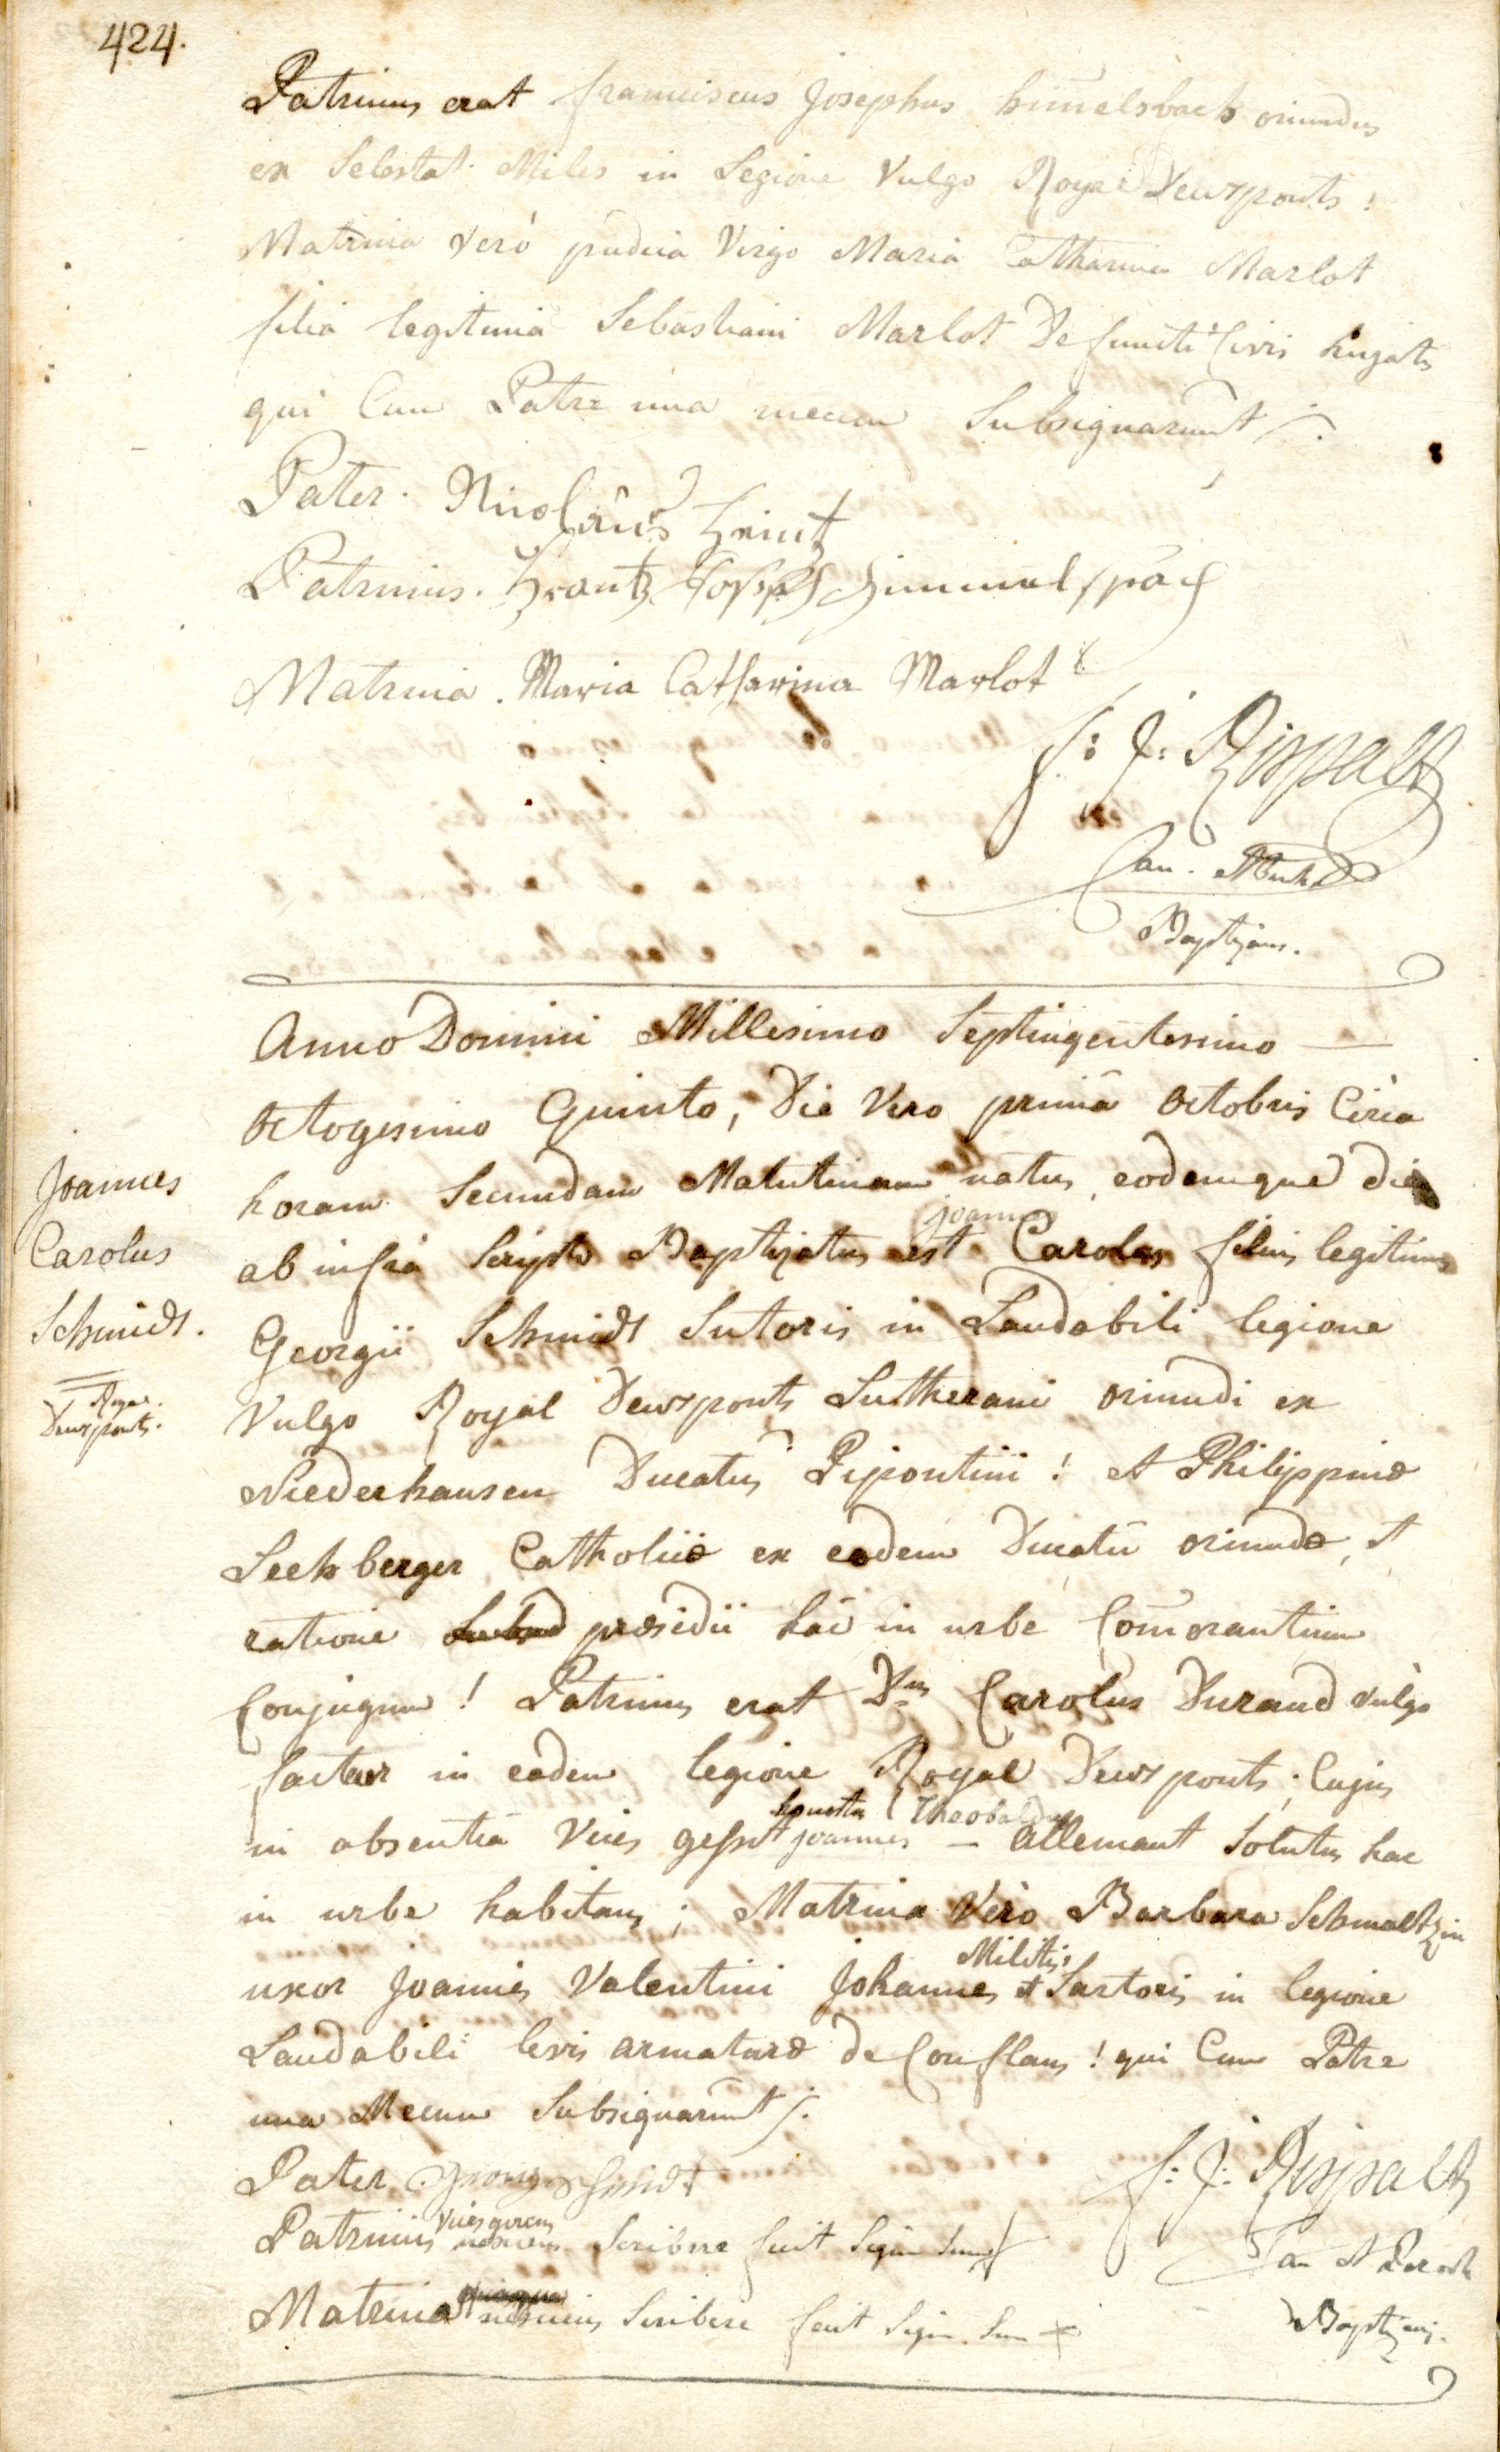 424.
Patrinus erat franciscus Josephus himelsbach oriundus
ex Selestat Miles in Legione Vulgo Royal Deuxponts !
Matrina verò pudica Virgo Maria Catharina Marlot
filia legitima Sebastiani Marlot Defuncti Civis hujatis
qui Cum Patre una mecum Subsignarunt /.
Pater. Nicolaus Heintz
Patrinus. Frantz Joseph Himmelspach
Matrina. Maria Catharina Marlot
f: J: Rispalt
Can. et
Baptizans.
Anno Domini Millesimo Septingentesimo —
octogesimo Quinto, Die Vero primâ octobris Circa
horam Secundam Matutinam natus, eodemque die
joannes
ab infrà Scripto Baptizatus est Carolus filius legitimus
Georgii Schmidt Sutoris in Laudabili legione
Vulgo Royal Deuxponts Lutherani oriundi ex
Niederhausen Ducatus Bipontini ! et Philippinæ
Leckberger Catholicæ ex eodem Ducatu oriundæ, et
ratione præsidii hac in urbe Com̄orantium
Conjugum ! Patrinus erat Dnus Carolus Durand vulgo
facteur in eadem legione Royal Deuxponts ; Cujus
honestus Theobaldus
in absentiâ Vices gessit joannes — allemant Solutus hac
in urbe habitans ; Matrina Verò Barbara Schmaltzin
Militis
uxor Joannis Valentini Johannes et Sartoris in legione
Laudabili levis armaturæ de Conflans ! qui Cum Patre
una Mecum Subsignarunt /.
Pater. Georg Schmidt
f: J: Rispalt
vices gerens
Patrinus nesciens Scribere fecit Signum Suum
Can et Paroch
Matrina nesciens Scribere fecit Sign. Suum x
Baptizans.
Joannes
Carolus
Schmidt.
Royal
Deuxponts.